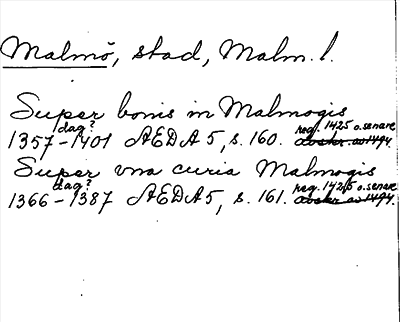 Malmö, stad, Malm. l.
Super bonis in Malmogis
dag? reg. 1425 o. senare
1357-1401 AEDA 5, s. 160. avskr. av 1494.
Super vna curia Malmogis
dag? reg. 1425 o. senare
1366-1387 AEDA 5, s. 161. avskr. av 1494.